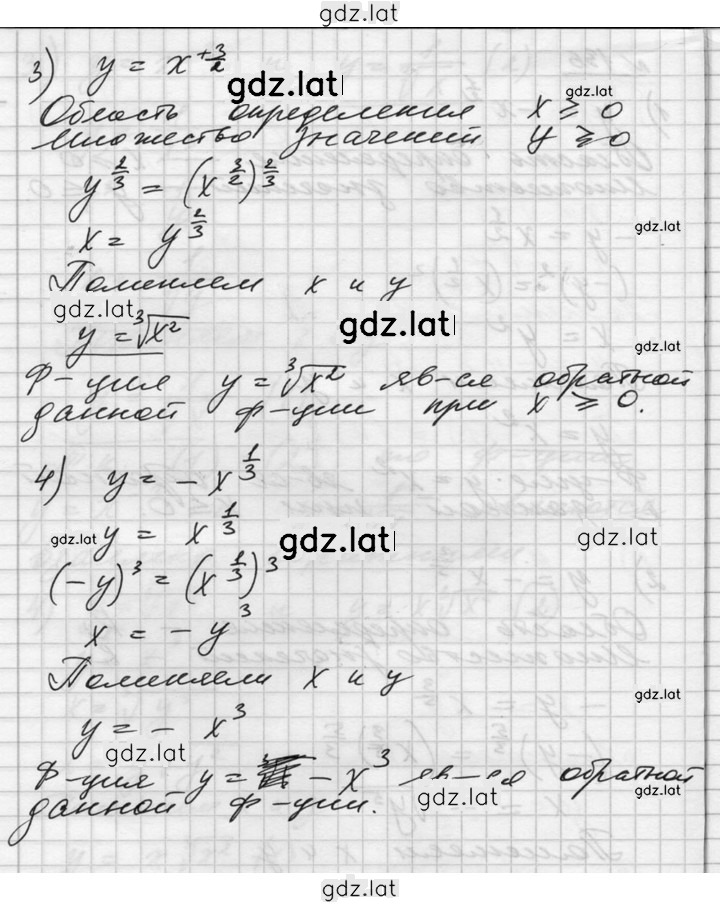 gdz.lat
3) y = x^{+3/2}
gdz.lat
gdz.lat
Область определения x ⩾ 0
множество значений y ⩾ 0
y^{2/3} = (x^{3/2})^{2/3}
x = y^{2/3}
gdz.lat
Поменяем x и y
gdz.lat
gdz.lat
y = ∛x²
gdz.lat
Ф-ция y = ∛x² яв-ся обратной
данной ф-ции при x ⩾ 0.
4) y = - x^{1/3}
gdz.lat
y = x^{1/3}
gdz.lat
gdz.lat
(-y)³ = (x^{1/3})³
x = - y³
Поменяем x и y
gdz.lat
y = - x³
gdz.lat
Ф-ция y = - x³ яв-ся обратной
gdz.lat
данной ф-ции.
gdz.lat
gdz.lat